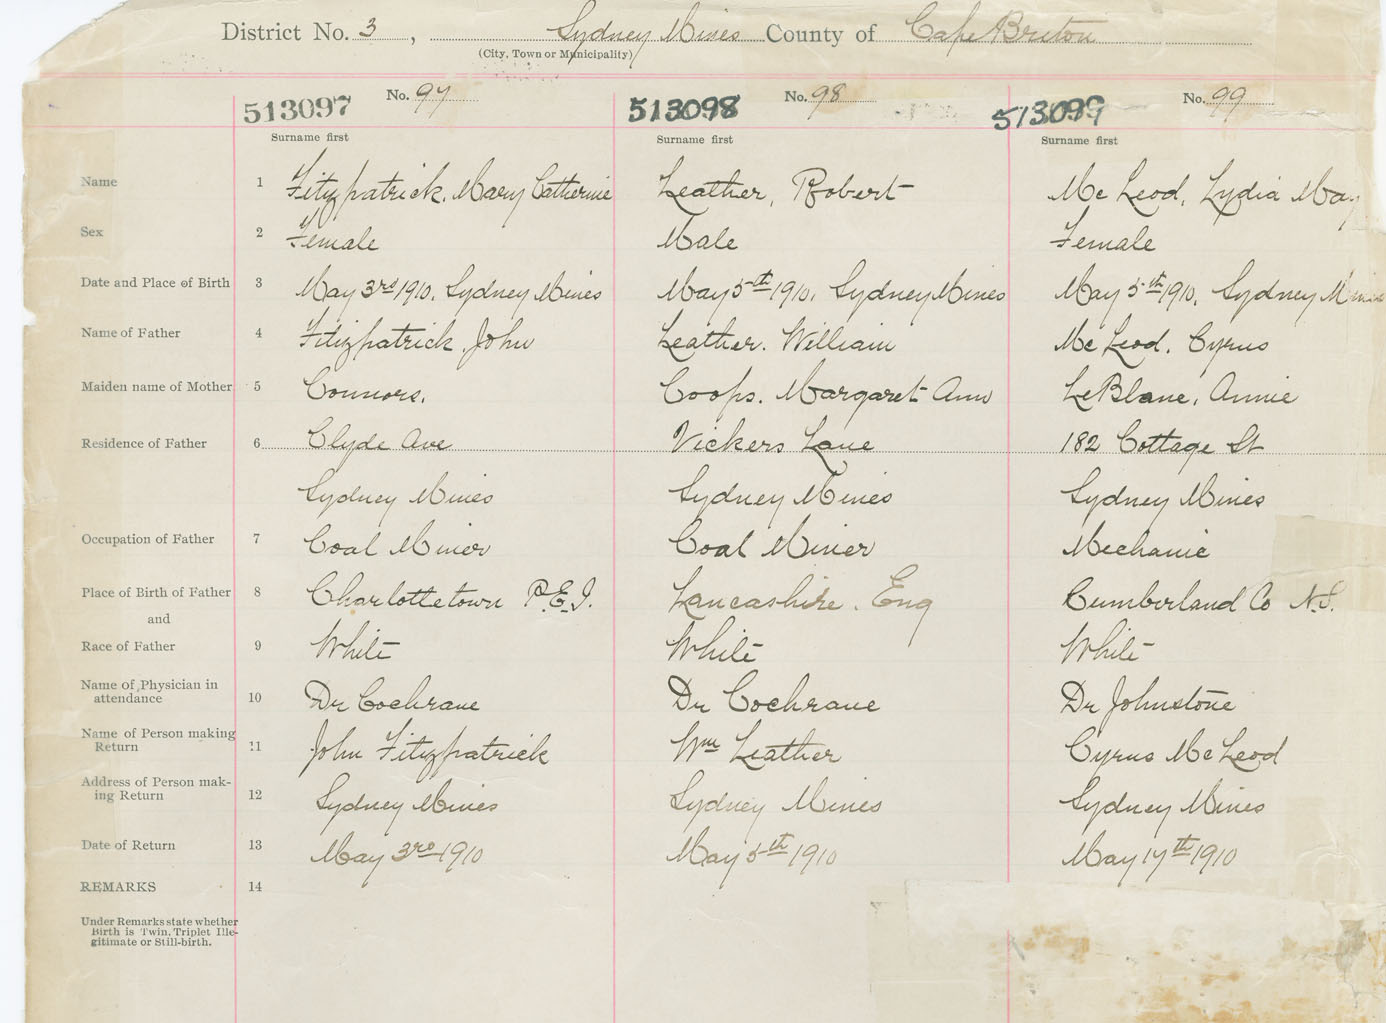 District No. 3, Sydney Mines County of Cape Breton
(City, Town or Municipality)
513097 No. 97 513098 No. 98 513099 No. 99
Surname first Surname first Surname first
Name 1 Fitzpatrick, Mary Catherine Leather, Robert Mc Leod, Lydia May
Sex 2 Female Male Female
Date and Place of Birth 3 May 3rd 1910, Sydney Mines May 5th 1910, Sydney Mines May 5th 1910, Sydney Mines
Name of Father 4 Fitzpatrick, John Leather, William Mc Leod, Cyrus
Maiden name of Mother 5 Connors. Coops. Margaret Ann LeBlanc, Annie
Residence of Father 6 Clyde Ave Vickers Lane 182 Cottage St
Sydney Mines Sydney Mines Sydney Mines
Occupation of Father 7 Coal Miner Coal Miner Mechanic
Place of Birth of Father 8 Charlottetown P.E.I. Lancashire, Eng Cumberland Co N.S.
and
Race of Father 9 White White White
Name of Physician in
attendance 10 Dr Cochrane Dr Cochrane Dr Johnstone
Name of Person making
Return 11 John Fitzpatrick Wm Leather Cyrus Mc Leod
Address of Person mak-
ing Return 12 Sydney Mines Sydney Mines Sydney Mines
Date of Return 13 May 3rd 1910 May 5th 1910 May 17th 1910
REMARKS 14
Under Remarks state whether
Birth is Twin, Triplet Ille-
gitimate or Still-birth.